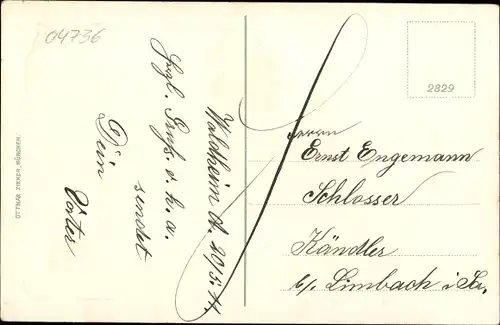 04736
Waldheim d. 20/5. 11.
Herzl. Grüß. v. h. a.
sendet
Dein
Vater
OTTMAR ZIEHER, MÜNCHEN.
2829
Herrn
Ernst Engemann
Schlosser
Kändler
b/. Limbach i. Sa.